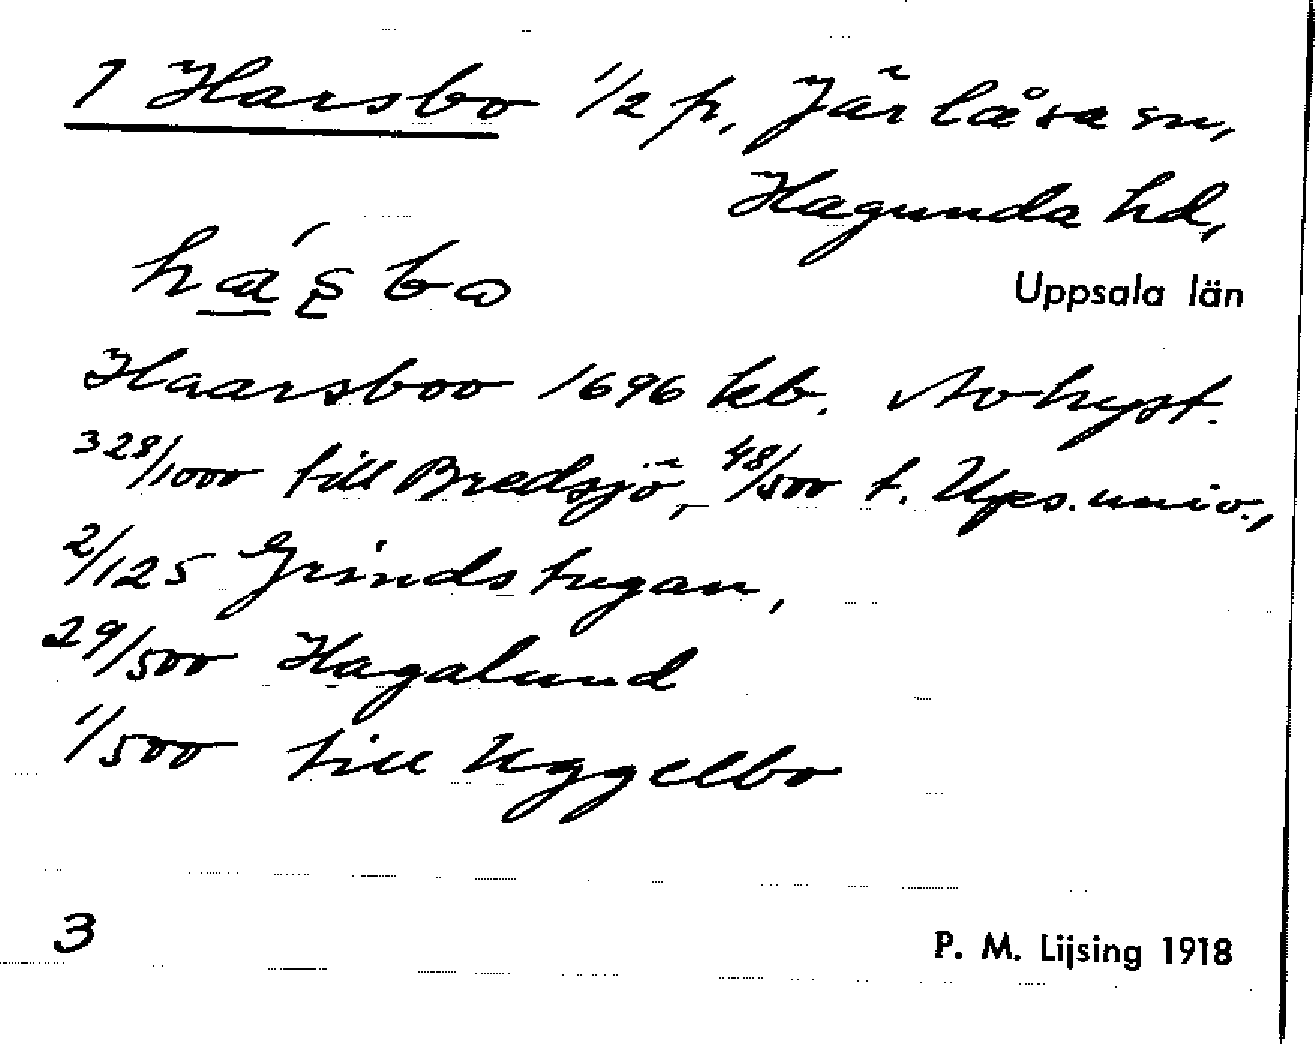 1 Harsbo 1/2 fr, Järlåsa sn,
Hagunda hd,
Uppsala län
há̱s̱bo
Haarsboo 1696 kb. Avhyst.
328/1000 till Bredsjö, 48/500 t. Ups. univ.,
2/125 Grindstugan,
29/500 Hagalund
1/500 till Uggelbo
3
P. M. Lijsing 1918